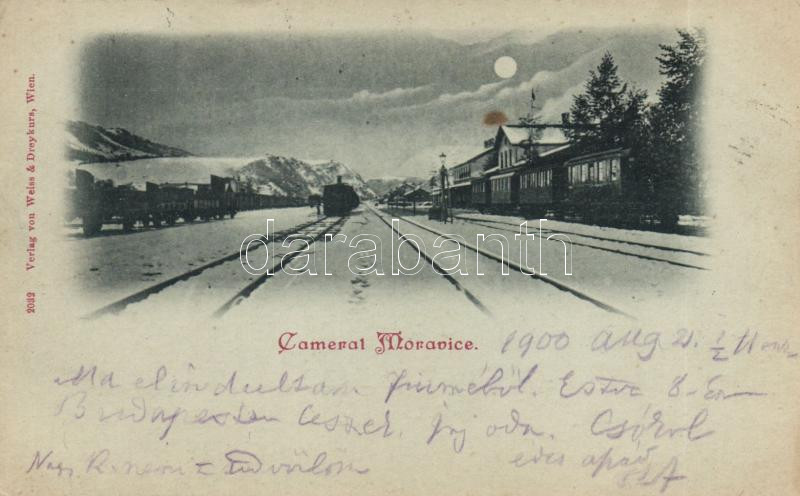 2032 Verlag von Weiss & Dreykurs, Wien.
darabanth.com
Cameral Moravice.
1900 Aug 21. ½ 11
Ma elindultam Fiuméből. Estve 8-
Budapesten leszek. Irj oda. Csókol
édes apád